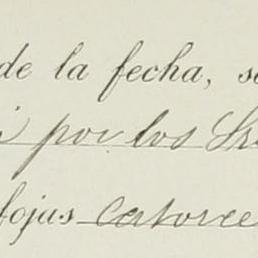 de la fecha, s
por los Sr
fojas catorce